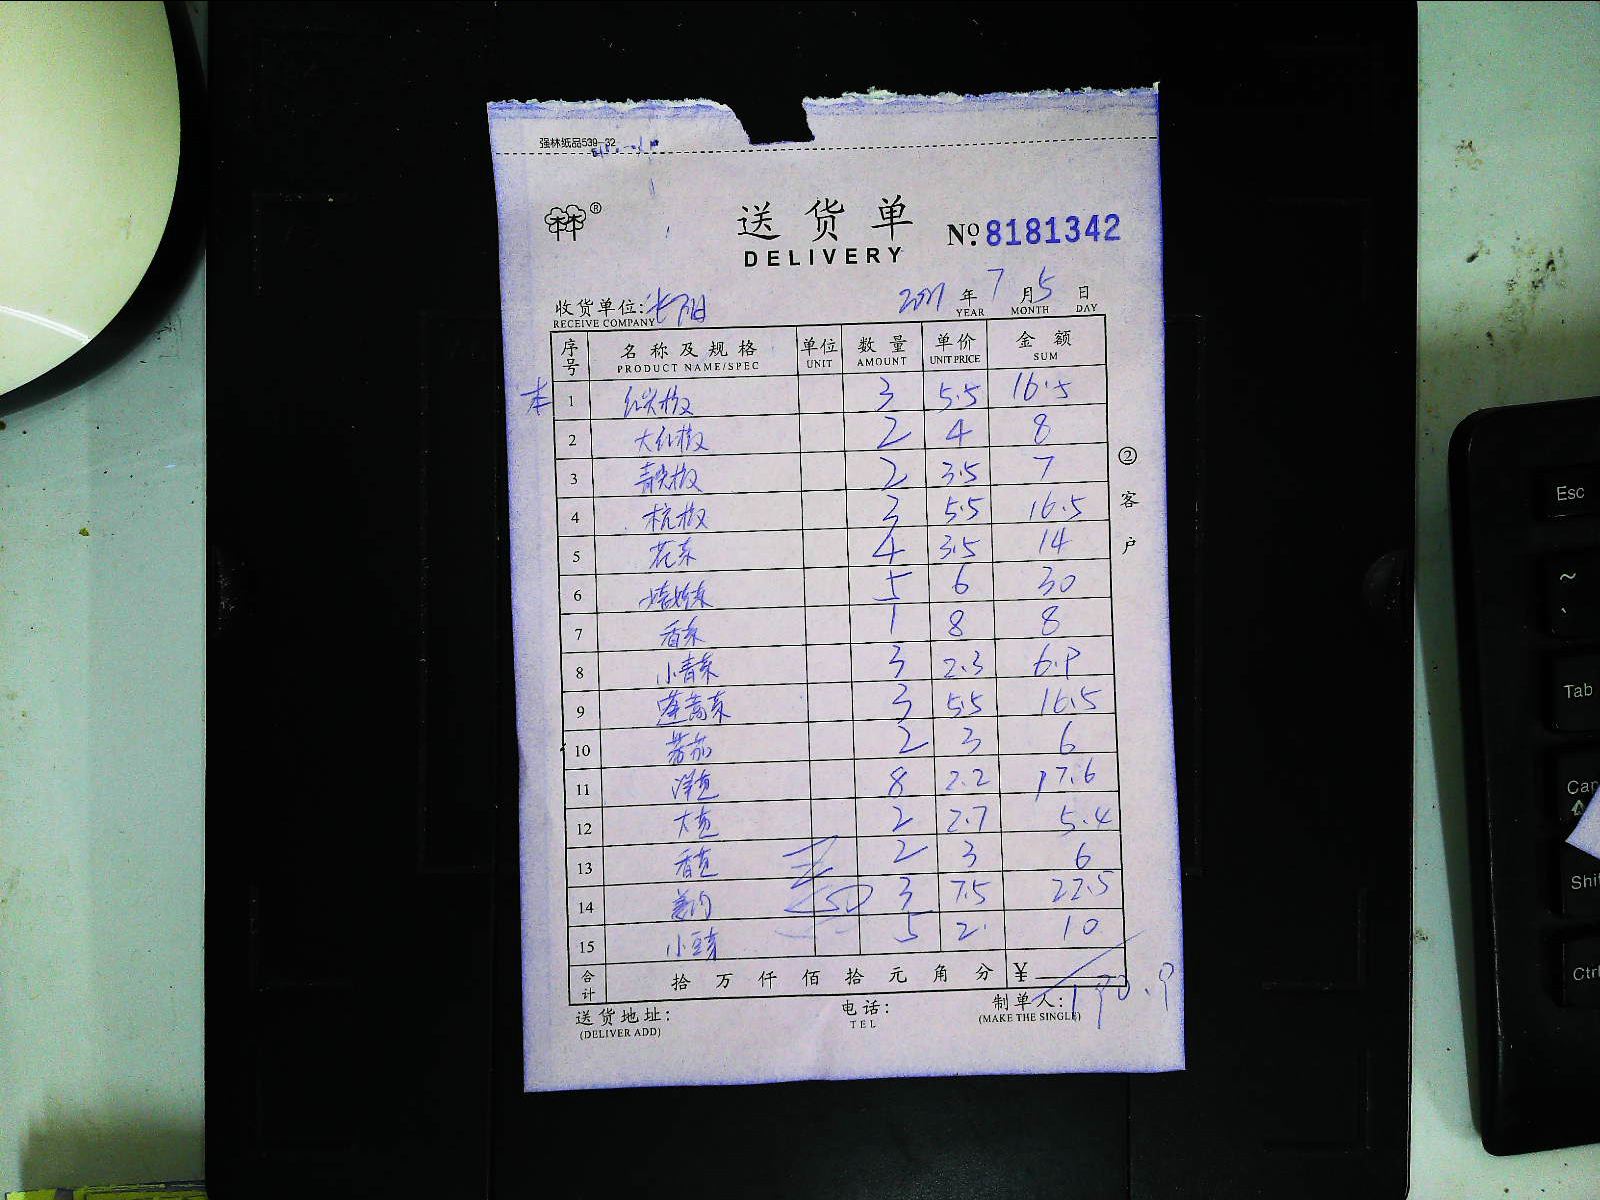 强林纸品539-32
送货单
DELIVERY
№ 8181342
收货单位:
RECEIVE COMPANY
年 7 月 5 日
YEAR MONTH DAY
序号 名称及规格 单位 数量 单价 金额
PRODUCT NAME/SPEC UNIT AMOUNT UNIT PRICE SUM
本 1 红尖椒 3 5.5 16.5
2 大红椒 2 4 8
3 青尖椒 2 3.5 7
4 杭椒 3 5.5 16.5
5 花菜 4 3.5 14
6 娃娃菜 5 6 30
7 香菜 1 8 8
8 小青菜 3 2.3 6.9
9 蓬蒿菜 3 5.5 16.5
10 蕃茄 2 3 6
11 洋葱 8 2.2 17.6
12 大葱 2 2.7 5.4
13 香葱 2 3 6
14 姜 3 7.5 22.5
15 小豆芽 5 2. 10
合计 拾万仟佰拾元角分 ¥
190.9
送货地址: 电话: 制单人:
(DELIVER ADD) TEL (MAKE THE SINGLE)
② 客户
Esc
~
`
Tab
Shi
Ctrl